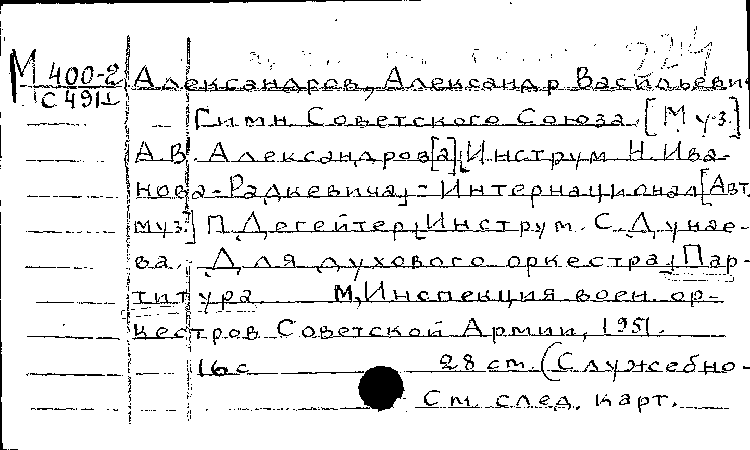 224
М 400-2 Александров, Александр Васильевич
С 491
Гимн Советского Союза. [Муз.]
А.В. Александров[а], Инструм. Н. Ива-
нова-Радкевича, - Интернационал [Авт.
муз.] П. Дегейтер, Инструм. С. Дунае-
ва. Для духового оркестра, Пар-
титура. М, Инспекция воен. ор-
кестров Советской Армии, 1951.
16 с 28 см. (Служебно-
См. след. карт.